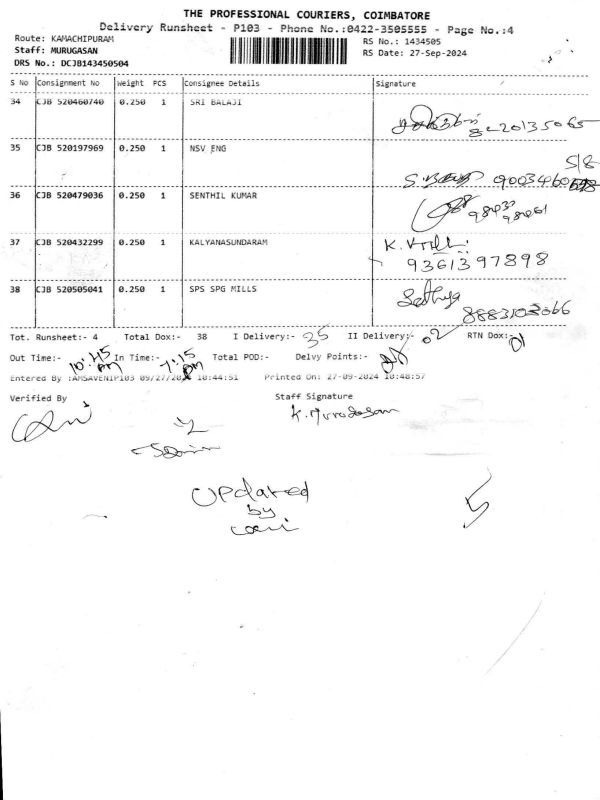 THE PROFESSIONAL COURIERS, COIMBATORE
Delivery Runsheet - P103 - Phone No.:0422-3505555 - Page No.:4
Route: KAMACHIPURAM
RS No.: 1434505
Staff: MURUGASAN
RS Date: 27-Sep-2024
DRS No.: DCJB143450504
S No Consignment No Weight PCS Consignee Details Signature
34 CJB 520460740 0.250 1 SRI BALAJI
35 CJB 520197969 0.250 1 NSV ENG
S/8
36 CJB 520479036 0.250 1 SENTHIL KUMAR
37 CJB 520432299 0.250 1 KALYANASUNDARAM
9361397898
38 CJB 520505041 0.250 1 SPS SPG MILLS Sathya
Tot. Runsheet:- 4 Total Dox:- 38 I Delivery:- 35 II Delivery:- 02 RTN Dox:- 01
Out Time:- 10:45 pm In Time:- 7:15 pm Total POD:- Delvy Points:-
Entered By :AMSAVENIP103 09/27/2024 10:44:51 Printed On: 27-09-2024 10:48:57
Verified By Staff Signature
K. Murugasan
Updated
by
5